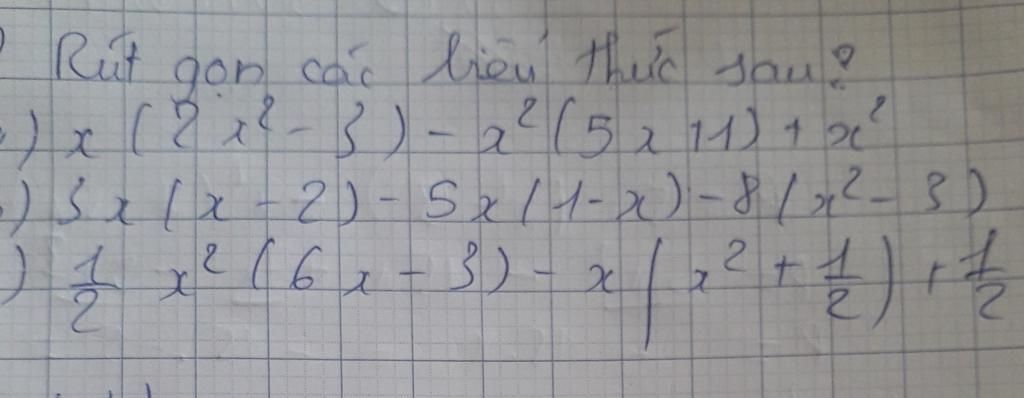 Rút gọn các biểu thức sau?
) x (2x² - 3) - x² (5x + 1) + x²
) 3x (x - 2) - 5x (1 - x) - 8 (x² - 3)
) 1/2 x² (6x - 3) - x (x² + 1/2) + 1/2